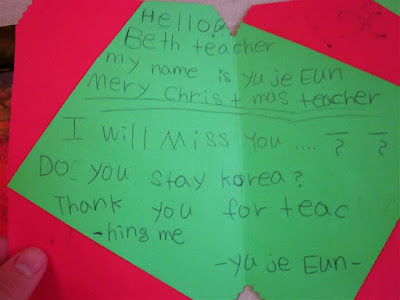 Hello
Beth teacher
my name is yu je Eun
Mery Christmas teacher
I will Miss You .... ? ?
Do you stay korea?
Thank you for teac
-hing me
-yu je Eun-